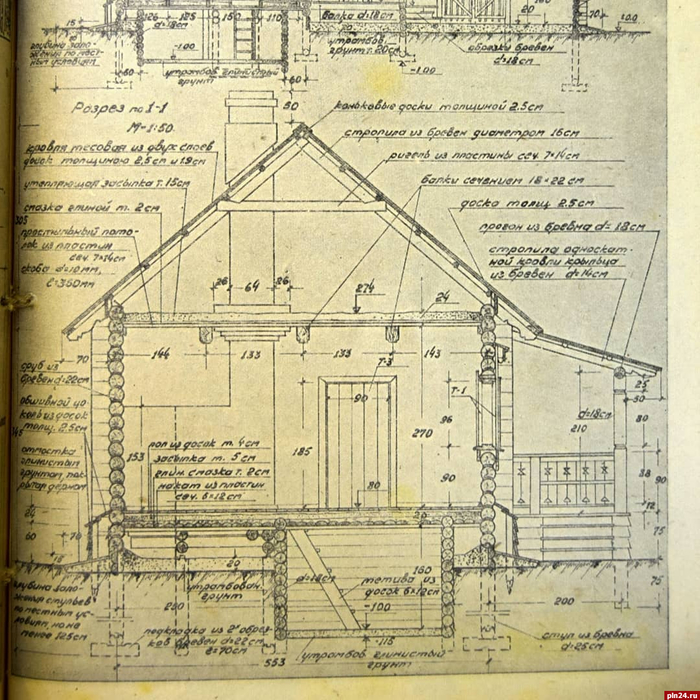 126 125 150 110
d=18см
балка d=18см
20
70
100
15
-1.00
60
утрамбов. глинистый
грунт
утрамбов.
грунт т. 20см
-1.00
обрезки бревен
d=18см
60
50
Разрез по 1-1
М-1:50
коньковые доски толщиной 2.5см
стропила из бревен диаметром 16см
кровля тесовая из двух слоев
досок толщиною 2,5 см и 1.9см
ригель из пластины сеч. 7×14см
утепляющая засыпка т. 15см
балки сечением 18×22 см
смазка глиной т. 2см
доска толщ. 2.5см
прогон из бревна d=18см
накат из пластин
сеч. 7×14см
скоба d=10мм,
ℓ=350мм
стропила односкат-
ной кровли крыльца
из бревен d=14см
26 64 26
274
24
70
144 133 133 143
Т-3
Т-1
сруб из
бревен d=22см
обшивной цо-
коль из досок
толщ. 2.5см
отмостка
глинистым
грунтом, пок-
рытая дерном
90
96
270
185
153
90
25
50
d=18см
210
80
38
90
12
75
пол из досок т. 4см
засыпка т. 5см
глин. смазка т. 2см
накат из пластин
сеч. 6×12см
80
20
60
70
15
20
утрамбован.
грунт
d=18см
160
тетива из
досок 6×12см
-100
-115
200
75
менее 125см
подкладка из 2х обрез-
ков бревен d=22см
ℓ=70см
553
утрамб. глинистый
грунт
стул из бревна
d=25см
pln24.ru